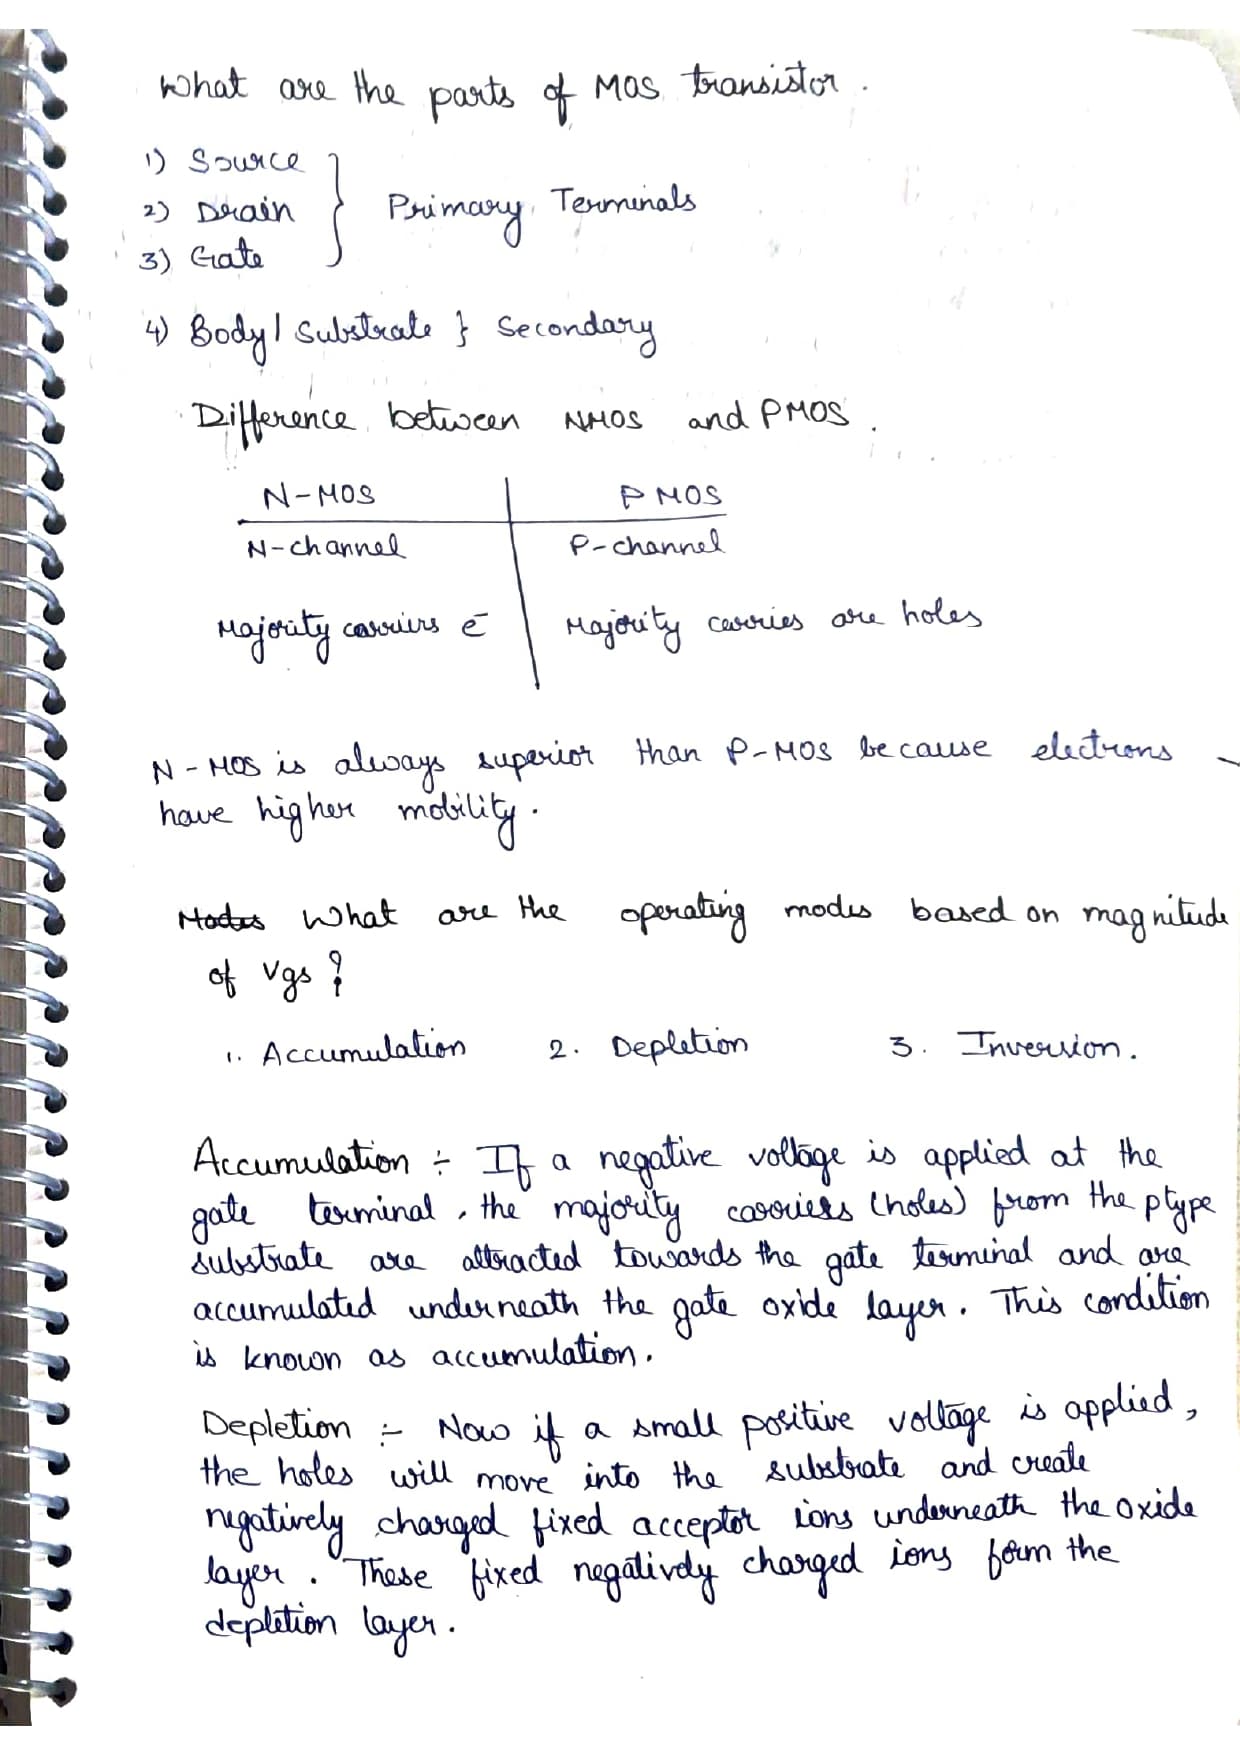 What are the parts of MOS transistor.
1) Source
2) Drain } Primary Terminals
3) Gate
4) Body/Substrate } Secondary
Difference between NMOS and PMOS.
N-MOS | PMOS
N-channel | P-channel
Majority carriers e̅ | Majority carries are holes
N-MOS is always superior than P-MOS because electrons
have higher mobility.
Modes What are the operating modes based on magnitude
of Vgs ?
1. Accumulation 2. Depletion 3. Inversion.
Accumulation ÷ If a negative voltage is applied at the
gate terminal, the majority carriers (holes) from the ptype
substrate are attracted towards the gate terminal and are
accumulated underneath the gate oxide layer. This condition
is known as accumulation.
Depletion :- Now if a small positive voltage is applied,
the holes will move into the substrate and create
negatively charged fixed acceptor ions underneath the oxide
layer. These fixed negatively charged ions form the
depletion layer.